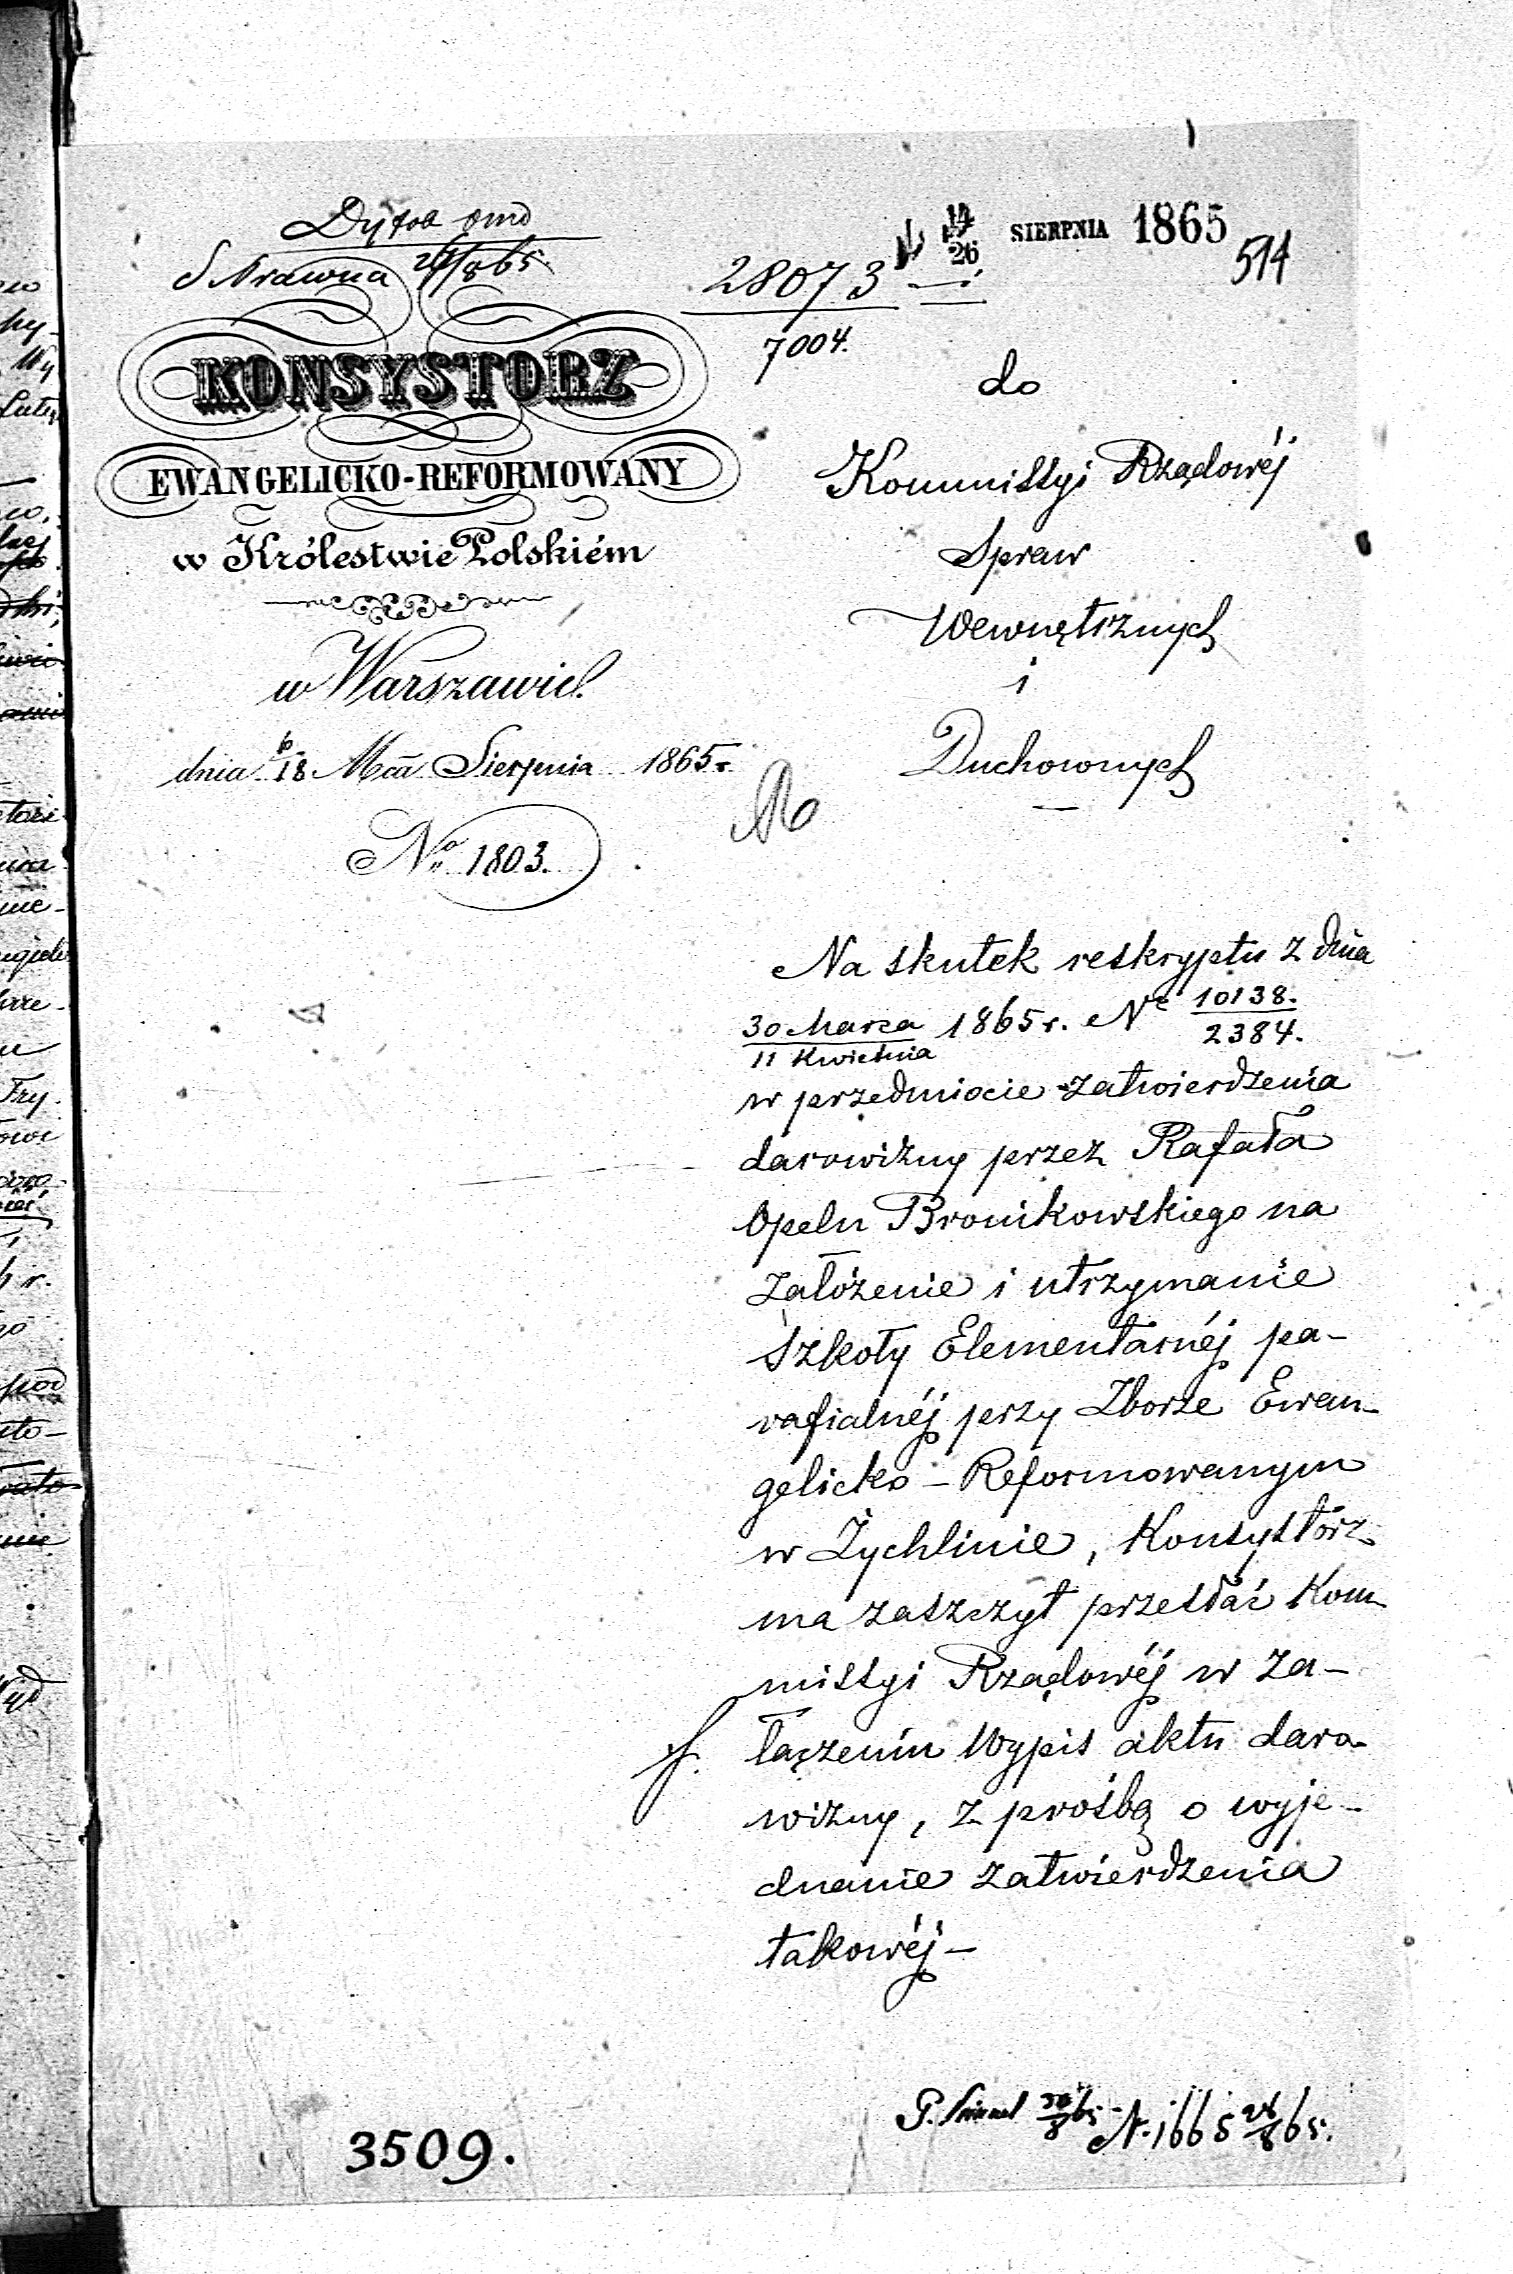 S Prawna 26/8 65.
28073
7004.
14/26 SIERPNIA 1865
514
KONSYSTORZ
EWANGELICKO-REFORMOWANY
w Królestwie Polskiém
w Warszawie.
dnia 6/18 Mca Sierpnia 1865 r.
No 1803.
do
Kommissyi Rządowéj
Spraw
Wewnętrznych
i
Duchownych
Na skutek reskryptu z dnia
30 Marca / 11 Kwietnia 1865 r. No 10138. / 2384.
w przedmiocie zatwierdzenia
darowizny przez Rafała
Opeln Bronikowskiego na
założenie i utrzymanie
szkoły Elementarnéj pa-
rafialnéj przy Zborze Ewan-
gelicko-Reformowanym
w Żychlinie, Konsystorz
ma zaszczyt przesłać Kom-
missyi Rządowéj w za-
łączeniu Wypis aktu daro-
wizny, z prośbą o wyje-
dnanie zatwierdzenia
takowéj-
N. 1665 26/8 65.
3509.